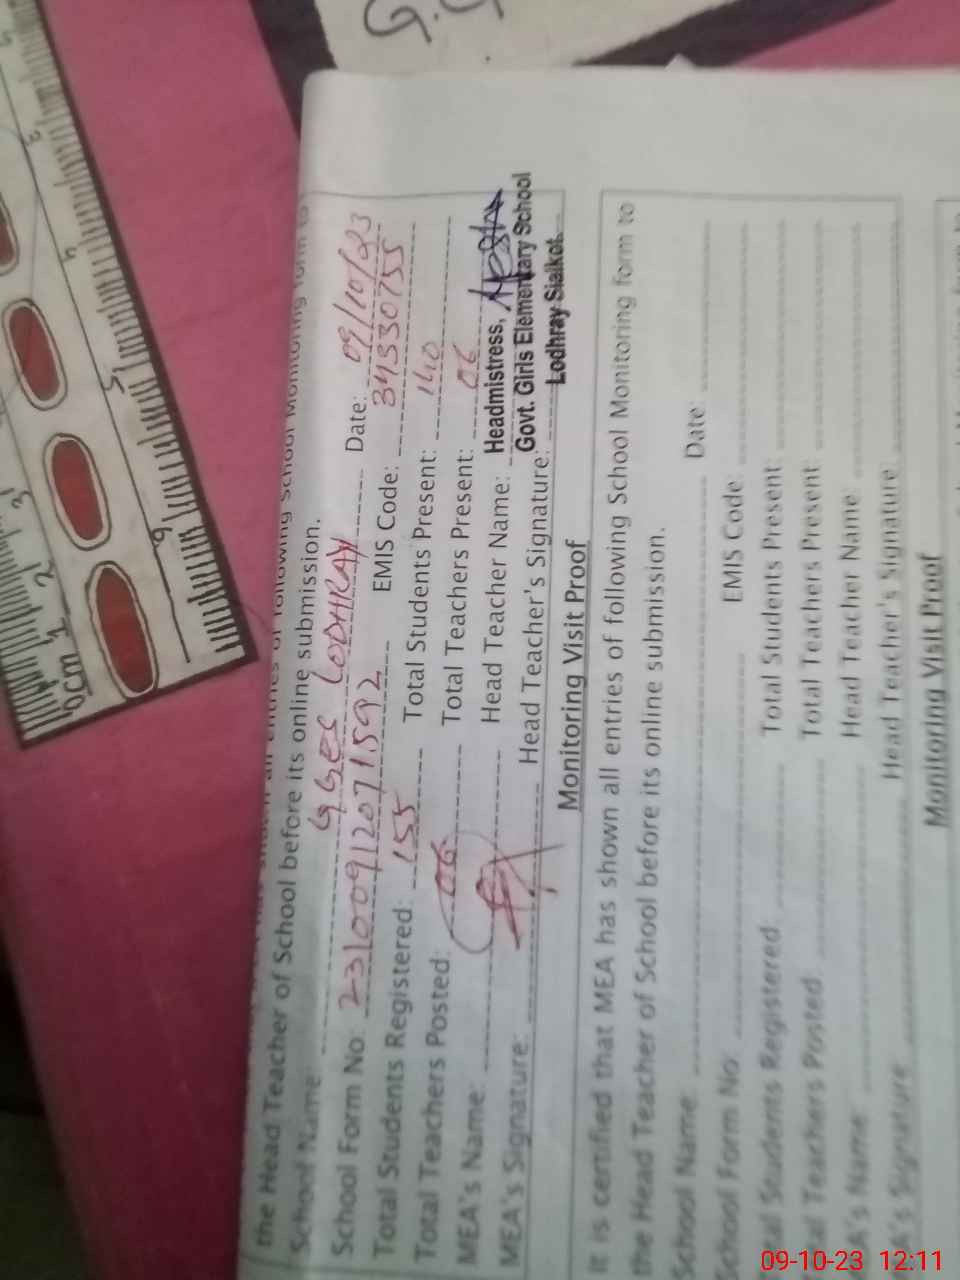 the Head Teacher of School before its online submission.
School Name: GGES LODHRAY Date: 09/10/23
School Form No: 23100912071592 EMIS Code: 34330755
Total Students Registered: 155 Total Students Present: 140
Total Teachers Posted: 06 Total Teachers Present: 06
MEA's Name: Head Teacher Name: Headmistress,
MEA's Signature: Head Teacher's Signature: Govt. Girls Elementary School
Lodhray Sialkot.
Monitoring Visit Proof
It is certified that MEA has shown all entries of following School Monitoring form to
the Head Teacher of School before its online submission.
School Name: Date:
School Form No: EMIS Code:
Total Students Registered: Total Students Present:
Total Teachers Posted: Total Teachers Present:
MEA's Name: Head Teacher Name:
MEA's Signature: Head Teacher's Signature:
Monitoring Visit Proof
0cm 1 2 3
09-10-23 12:11